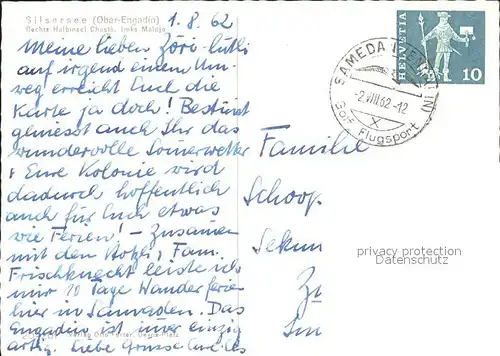 Silsersee (Ober-Engadin)
Rechts Halbinsel Chasté, links Maloja
1.8.62
HELVETIA
10
SAMEDAN (ENGADIN)
-2.VIII.62.-12
Golf Flugsport
Meine lieben Zöri-
auf irgend einem Um-
weg erreicht Euch die
Karte ja doch! Bestimmt
geniesst auch Ihr das
wundervolle Sommerwetter
+ Eure Kolonie wird
dadurch hoffentlich
auch für Euch etwas
wie Ferien! – Zusammen
mit den Fam.
Frischknecht leiste ich
mir 10 Tage Wanderferien
hier in Samaden. Das
Engadin ist immer einzig
artig. Liebe Grüsse Euch
Familie
Schoop
Sekun
Zü
privacy protection
Datenschutz